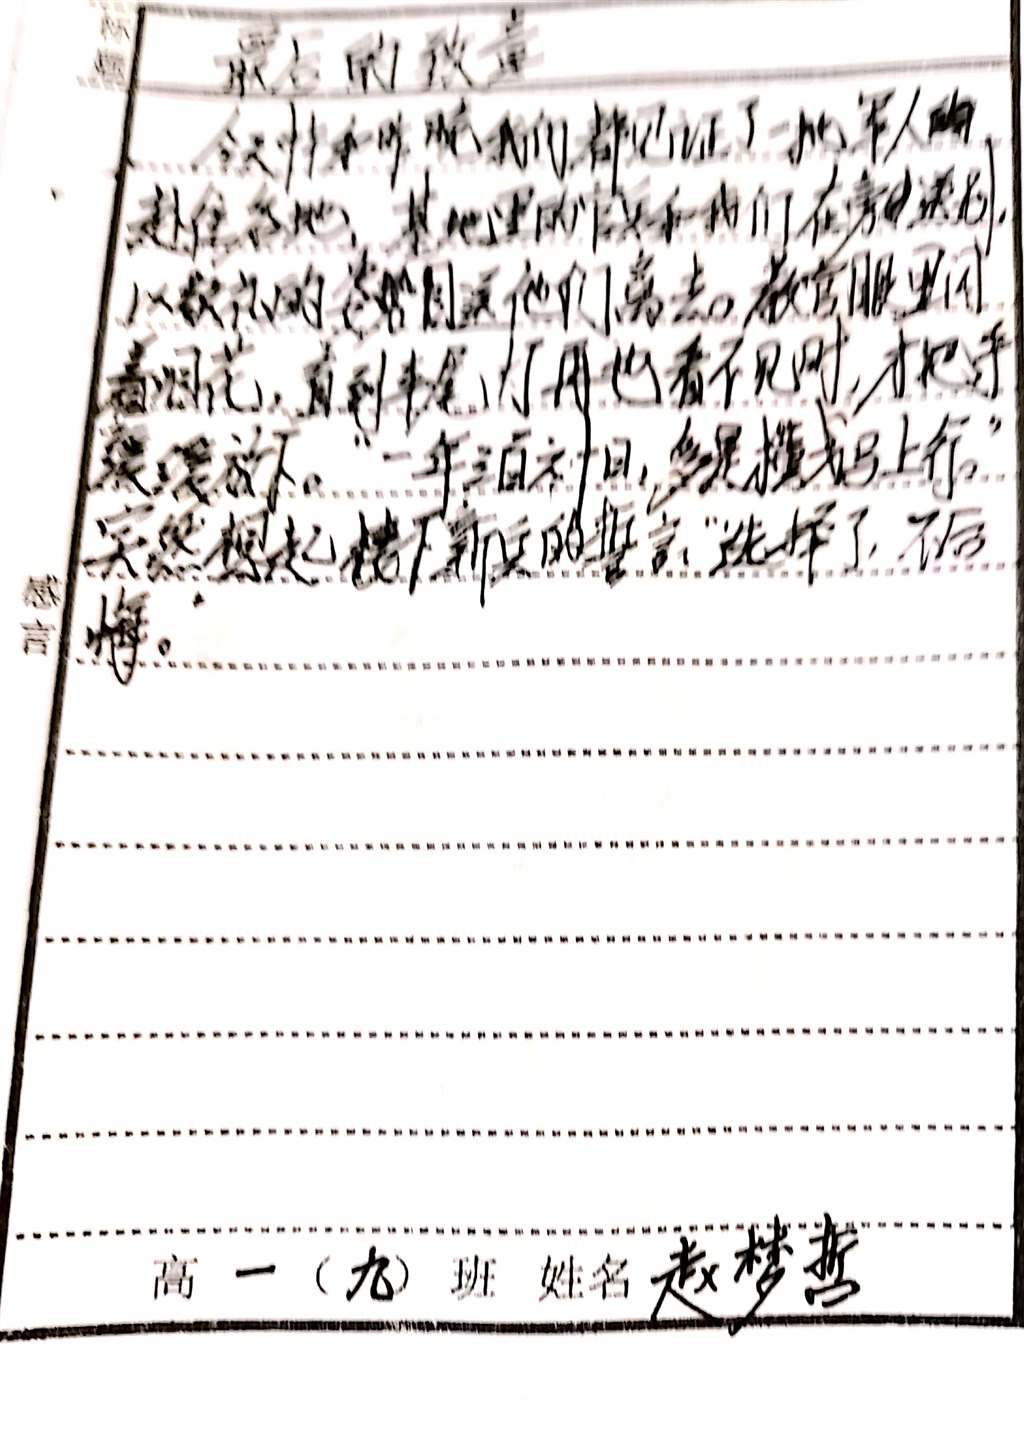 标题
最后的致意
今天我和昨晚我们都见证了一批军人的
赴住各地、基地里的官兵和我们在旁边送别,
以敬礼的姿势目送他们离去。教官眼里闪
着泪花,直到车尾灯再也看不见时,才把手
缓缓放下。“一年三百六十日,多是横戈马上行。”
突然想起楼下新兵的誓言:“选择了,不后
悔。”
感言
高一(九)班 姓名 赵梦哲